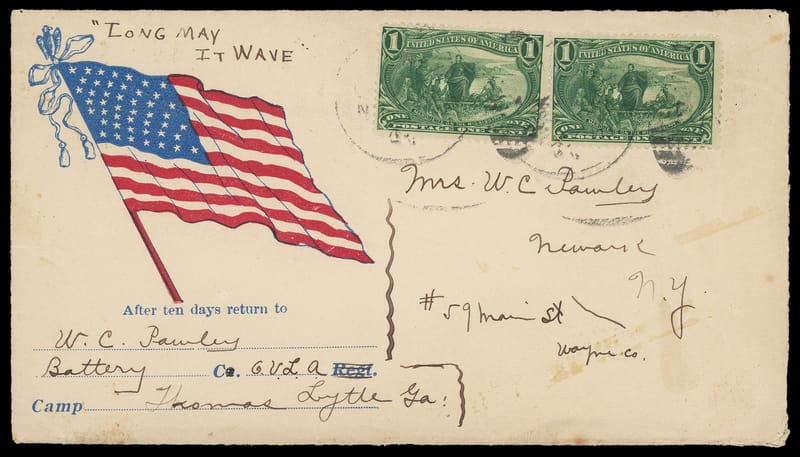 "LONG MAY
IT WAVE"
1 UNITED STATES OF AMERICA 1
ONE ONE
POSTAGE ONE CENT
1 UNITED STATES OF AMERICA 1
ONE ONE
POSTAGE ONE CENT
Mrs. W.C. Pawley
Newark
N.Y.
#59 Main St
Wayne Co.
After ten days return to
W. C. Pawley
Battery Co. G V L A Regt.
Camp Thomas Lytle Ga.